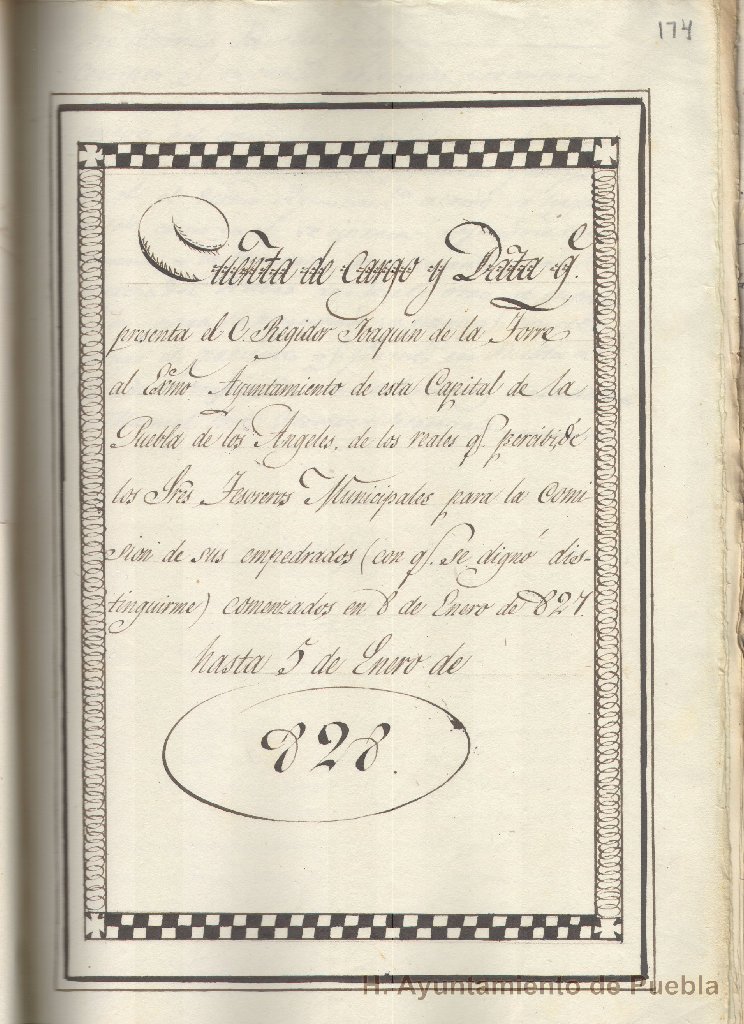 174
Cuenta de cargo y Data q.
presenta el C. Regidor Joaquin de la Torre
al Exmo. Ayuntamiento de esta Capital de la
Puebla de los Angeles, de los reales q. percibi, de
los Sres Tesoreros Municipales para la comi
sion de sus empedrados (con q. se dignó dis-
tinguirme) comenzados en 8 de Enero de 827.
hasta 5 de Enero de
828.
H. Ayuntamiento de Puebla